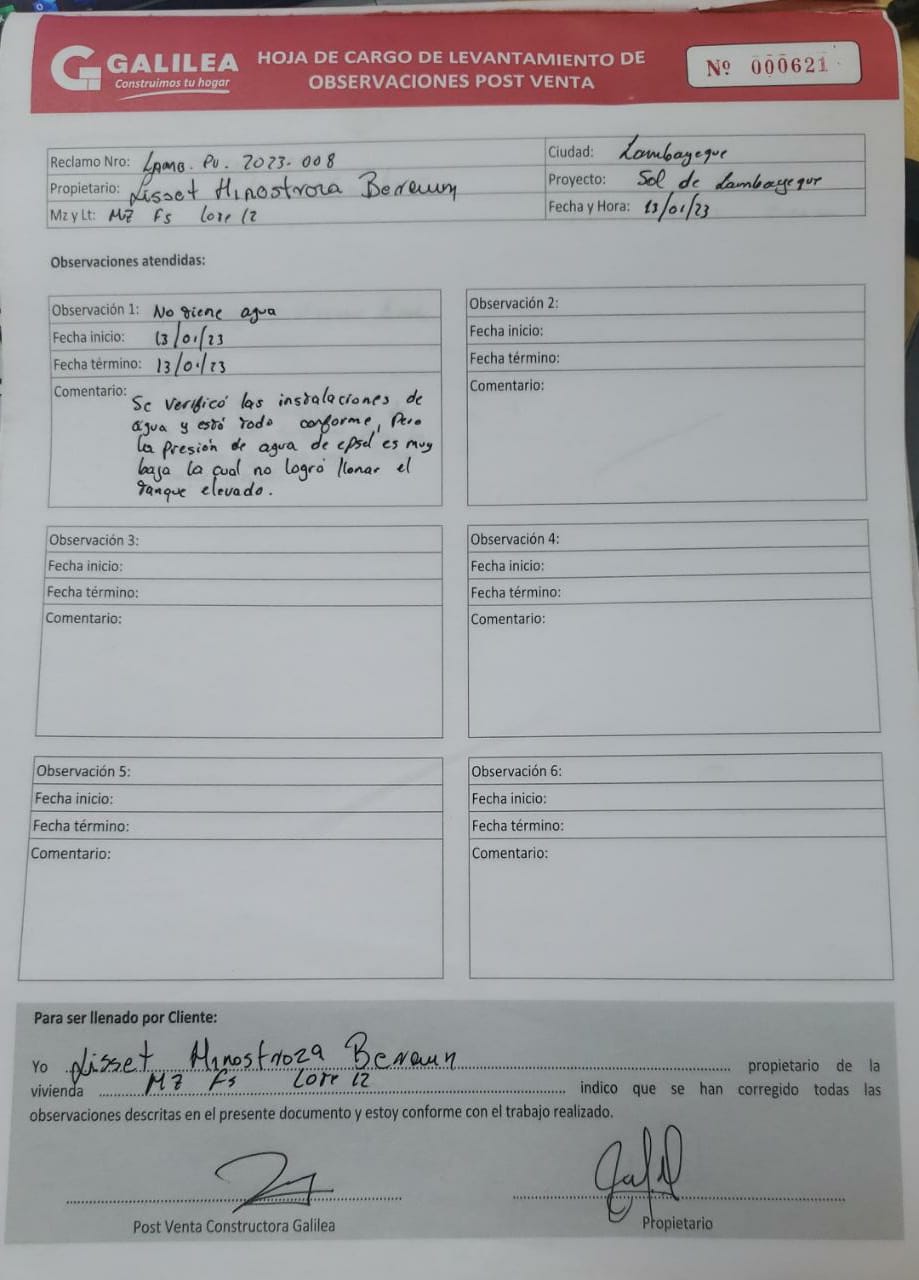 GALILEA
Construimos tu hogar
HOJA DE CARGO DE LEVANTAMIENTO DE
OBSERVACIONES POST VENTA
Nº 000621
Reclamo Nro: LAMB. PV. 2023-008
Propietario: Lisset Hinostroza Beraun
Mz y Lt: MZ Fs Lote 12
Ciudad: Lambayeque
Proyecto: Sol de Lambayeque
Fecha y Hora: 13/01/23
Observaciones atendidas:
Observación 1: No tiene agua
Fecha inicio: 13/01/23
Fecha término: 13/01/23
Comentario: Se verificó las instalaciones de
agua y está todo conforme, pero
la presión de agua de epsel es muy
baja la cual no logró llenar el
tanque elevado.
Observación 2:
Fecha inicio:
Fecha término:
Comentario:
Observación 3:
Fecha inicio:
Fecha término:
Comentario:
Observación 4:
Fecha inicio:
Fecha término:
Comentario:
Observación 5:
Fecha inicio:
Fecha término:
Comentario:
Observación 6:
Fecha inicio:
Fecha término:
Comentario:
Para ser llenado por Cliente:
Yo Lisset Hinostroza Beraun propietario de la
vivienda MZ Fs Lote 12 indico que se han corregido todas las
observaciones descritas en el presente documento y estoy conforme con el trabajo realizado.
Post Venta Constructora Galilea
Propietario